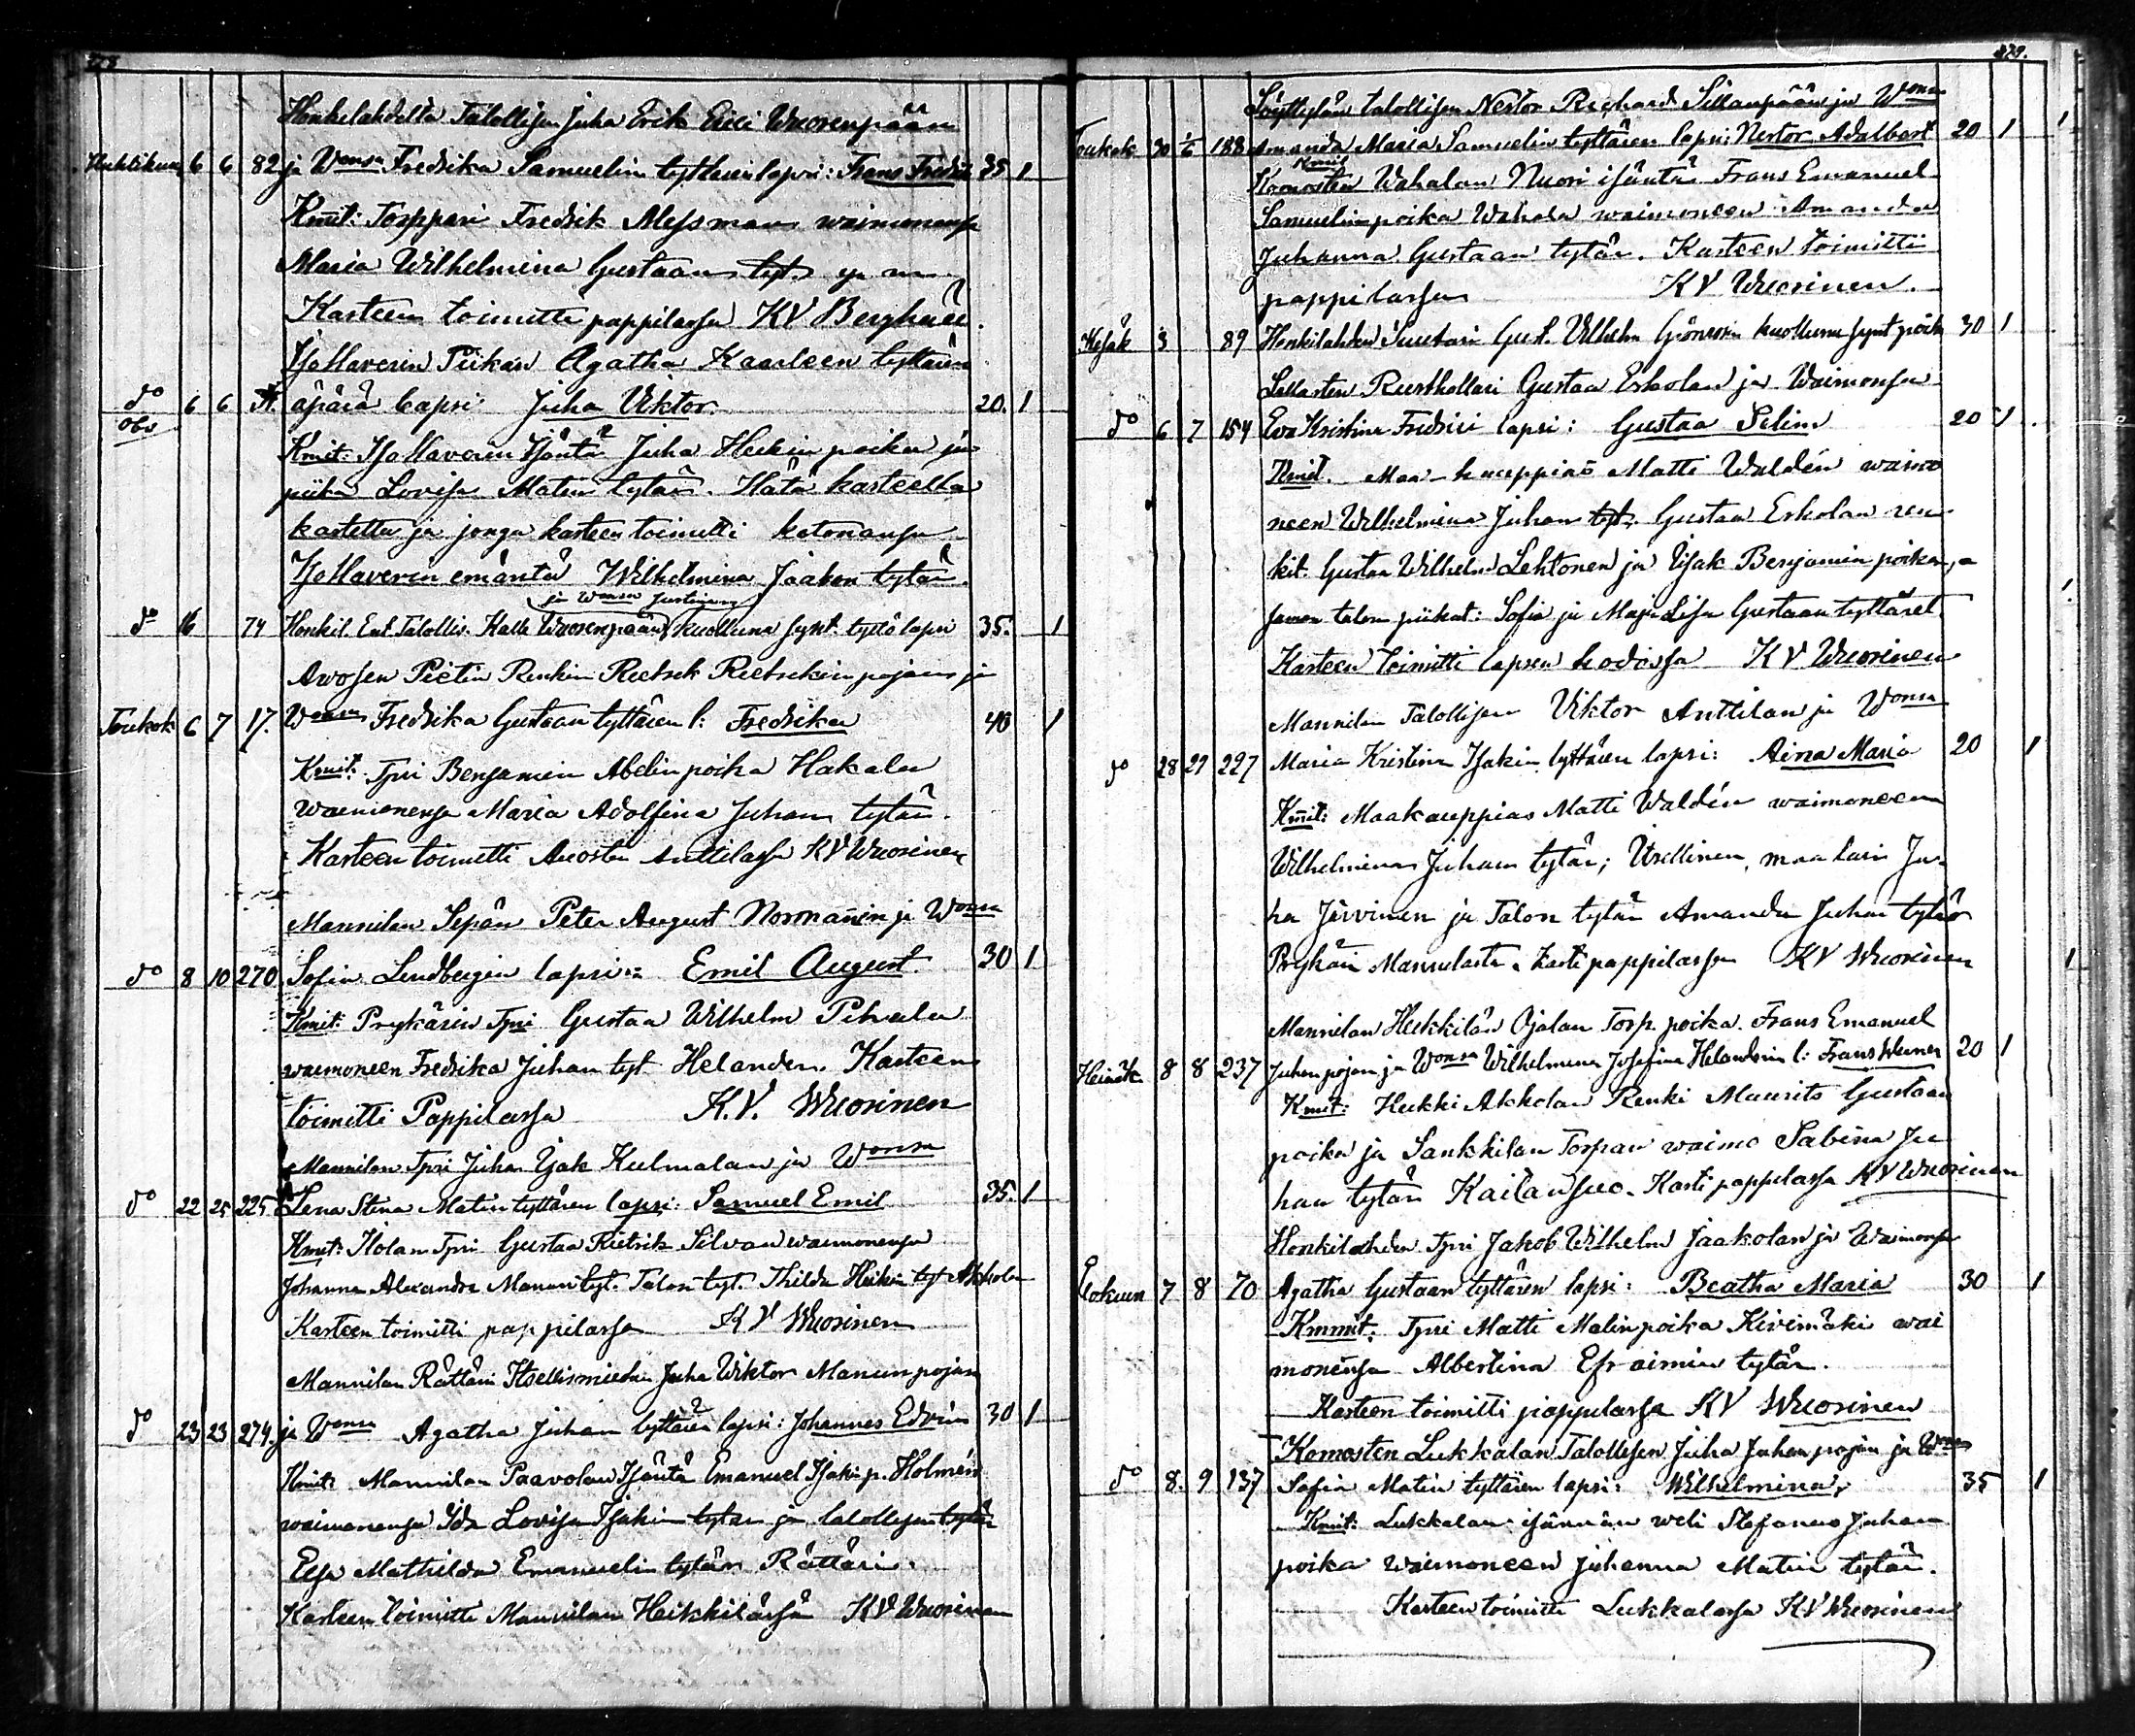 Honkilahdella Talollisen Juha Erik Erici Wuorenpään
Huhtikuu 6 6 82 ja Wonsa Fredrika Samuelin tyttären lapsi: Frans Fredrik 35 1
Kmit: Torppari Fredrik Messman waimonensa
Maria Wilhelmina Gustaan tyt.
Kasteen toimitti pappilassa KV Berghäll.
Isollaverin Piikan Agatha Kaarleen tyttären
do 6 6 äpärä lapsi: Juha Viktor. 20. 1
obs
Kmit: Isollaverin Isäntä Juha Heikin poika ja
piika Lovisa Matin tytär. Hätä kasteella
kastettu ja jonga kasteen toimitti kotonansa
Isollaverin emäntä Wilhelmina Jaakon tytär.
ja Wonsa Justinan
do 16 74 Honkil. Ent. Talollis. Kalle Wuorenpään kuolluna synt. tyttö lapsi 35. 1
Awosen Pietin Renkin Rietrek Rietrekin pojan ja
Toukok 6 7 17. Wonsa Fredrika Gustaan tyttären l: Fredrika 40 1
Kmit: Tpri Benjamin Abelin poika Hakala
waimonensa Maria Adolfina Juhan tytär.
Kasteen toimitti Auosten Anttilassa KV Wuorinen
Mannilan Sepän Peter August Normanin ja Wonsa
do 8 10 270 Sofia Lindbergin lapsi: Emil August. 30 1
Kmit: Prykärin Tpri Gustaa Wilhelm Pihala
waimoneen Fredrika Juhan tyt Helander. Kasteen
toimitti Pappilassa K.V. Wuorinen
Mannilan Tpri Juha Isak Kulmalan ja Wonsa
do 22 25 225 Lena Stina Matin tyttären lapsi: Samuel Emil 35. 1
Kmit: Ilolan Tpri Gustaa Rietrik Silvan waimonensa
Johanna Alexandra Manun tyt. Talon tyt. Thilda Heikin tyt Akkola
Kasteen toimitti pappilassa KV Wuorinen
Mannilan Rättäri Itsellismiehen Juha Wiktor Manun pojan
do 23 23 274. ja Wonsa Agatha Juhan tyttären lapsi: Johannes Edvin 30 1
Kmit: Mannilan Paavolan Isäntä Emanuel Isakin p. Holmén
waimonensa Ida Lovisa Isakin tytär ja talollisen tytär
Eva Mathilda Emanuelin tytär Rättäri.
Kasteen toimitti Mannilan Heikkilässä KV Wuorinen
279.
Löyttylän talollisen Nestor Richard Sillanpään ja Wonsa
Toukok 30 1/6 188 Amanda Maria Samuelin tyttären lapsi: Nestor Adalbert 20 1
Kmit
Wahalan Nuori isäntä Frans Emanuel
Samuelin poika Wahala waimoneen Amanda
Juhanna Gustaan tytär. Kasteen toimitti
pappilassa KV Wuorinen.
Kesäk 3 89 Honkilahden Suutari Gust. Vilhelm Grönroosin kuolluna synt poika 30 1
Sallasten Rusthollari Gustaa Eskolan ja Waimonsa
do 6 7 154 Eva Kristina Fredrici lapsi: Gustaa Selim 20 1
Kmit. Maa-kauppias Matti Waldén waimo
neen Wilhelmina Juhan tyt. Gustaa Eskolan ren
kit. Gustaa Wilhelm Lehtonen ja Isak Benjamin poika, a
saman talon piikat: Sofia ja Maja Lisa Gustaan tyttäret
Kasteen toimitti lapsen kodossa KV Wuorinen
Mannilan Talollisen Viktor Anttilan ja Wonsa
do 28 29 227 Maria Kristina Isakin tyttären lapsi: Aina Maria 20 1
Kmit: Maakauppias Matti Waldén waimoneen
Wilhelmina Juhan tytär; Itsellinen, maalari Ju-
ha Järvinen ja Talon tytär Amanda Juhan tytär
Prykäri Mannilasta. Kasti pappilassa KV Wuorinen
Mannilan Heikkilän Ojalan Torp. poika. Frans Emanuel
Heinäk. 8 8 237 Juhan pojan ja Wonsa Wilhelmina Josefina Helanderin l: Frans Werner 20 1
Kmit: Heikki Akkolan Renki Maurits Gustaan
poika ja Sankkilan Torpan waimo Sabina Ju
han tytär Kaitansuo. Kasti pappilassa KV Wuorinen
Honkilahden Tpri Jakob Wilhelm Jaakolan ja Waimonsa
Elokuun 7 8 70 Agatha Gustaan tyttären lapsi: Beatha Maria 30 1
Kmmit: Tpri Matti Matin poika Kivimäki wai
monensa Albertina Efraimin tytär.
Kasteen toimitti pappilassa KV Wuorinen
Komosten Lukkalan Talollisen Juha Juhan pojan ja Wonsa
do 8. 9 137 Sofia Matin tyttären lapsi: Wilhelmina, 35 1
Kmit: Lukkalan isännän weli Stefanus Juhan
poika waimoneen Juhanna Matin tytär.
Kasteen toimitti Lukkalassa KV Wuorinen